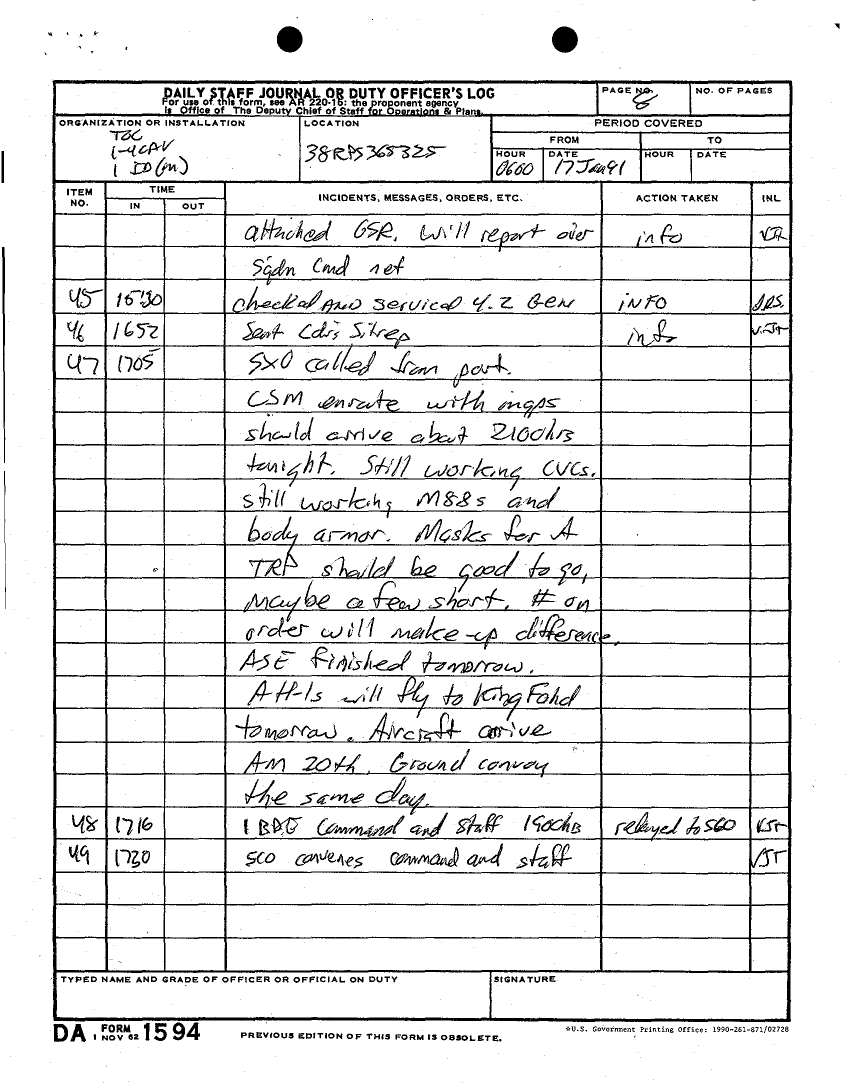 DAILY STAFF JOURNAL OR DUTY OFFICER'S LOG
For use of this form, see AR 220-15: the proponent agency
is Office of The Deputy Chief of Staff for Operations & Plans.
PAGE NO. 8
NO. OF PAGES
ORGANIZATION OR INSTALLATION
TOC
1-4 CAV
1 ID(M)
LOCATION
38RPS365325
PERIOD COVERED
FROM
TO
HOUR 0600
DATE 17 Jan 91
HOUR
DATE
ITEM NO.
TIME
IN
OUT
INCIDENTS, MESSAGES, ORDERS, ETC.
ACTION TAKEN
INL
attached GSR. Will report over info
Sqdn Cmd net
45 1530 checked AND serviced 4.2 GEN INFO
46 1652 Sent Cdr's Sitrep info
47 1705 SXO called from port.
CSM enroute with maps
should arrive about 2100hrs
tonight. Still working CVCs.
still working M88s and
body armor. Masks for A
TRP should be good to go,
Maybe a few short. # on
order will make-up difference.
ASE finished tomorrow.
AH-1s will fly to King Fahd
tomorrow. Aircraft arrive
AM 20th. Ground convoy
the same day.
48 1716 1 BDE Command and staff 1900hrs relayed to SCO VJT
49 1730 SCO convenes command and staff VJT
TYPED NAME AND GRADE OF OFFICER OR OFFICIAL ON DUTY
SIGNATURE
DA FORM 1 NOV 62 1594
PREVIOUS EDITION OF THIS FORM IS OBSOLETE.
*U.S. Government Printing Office: 1990-261-871/02728